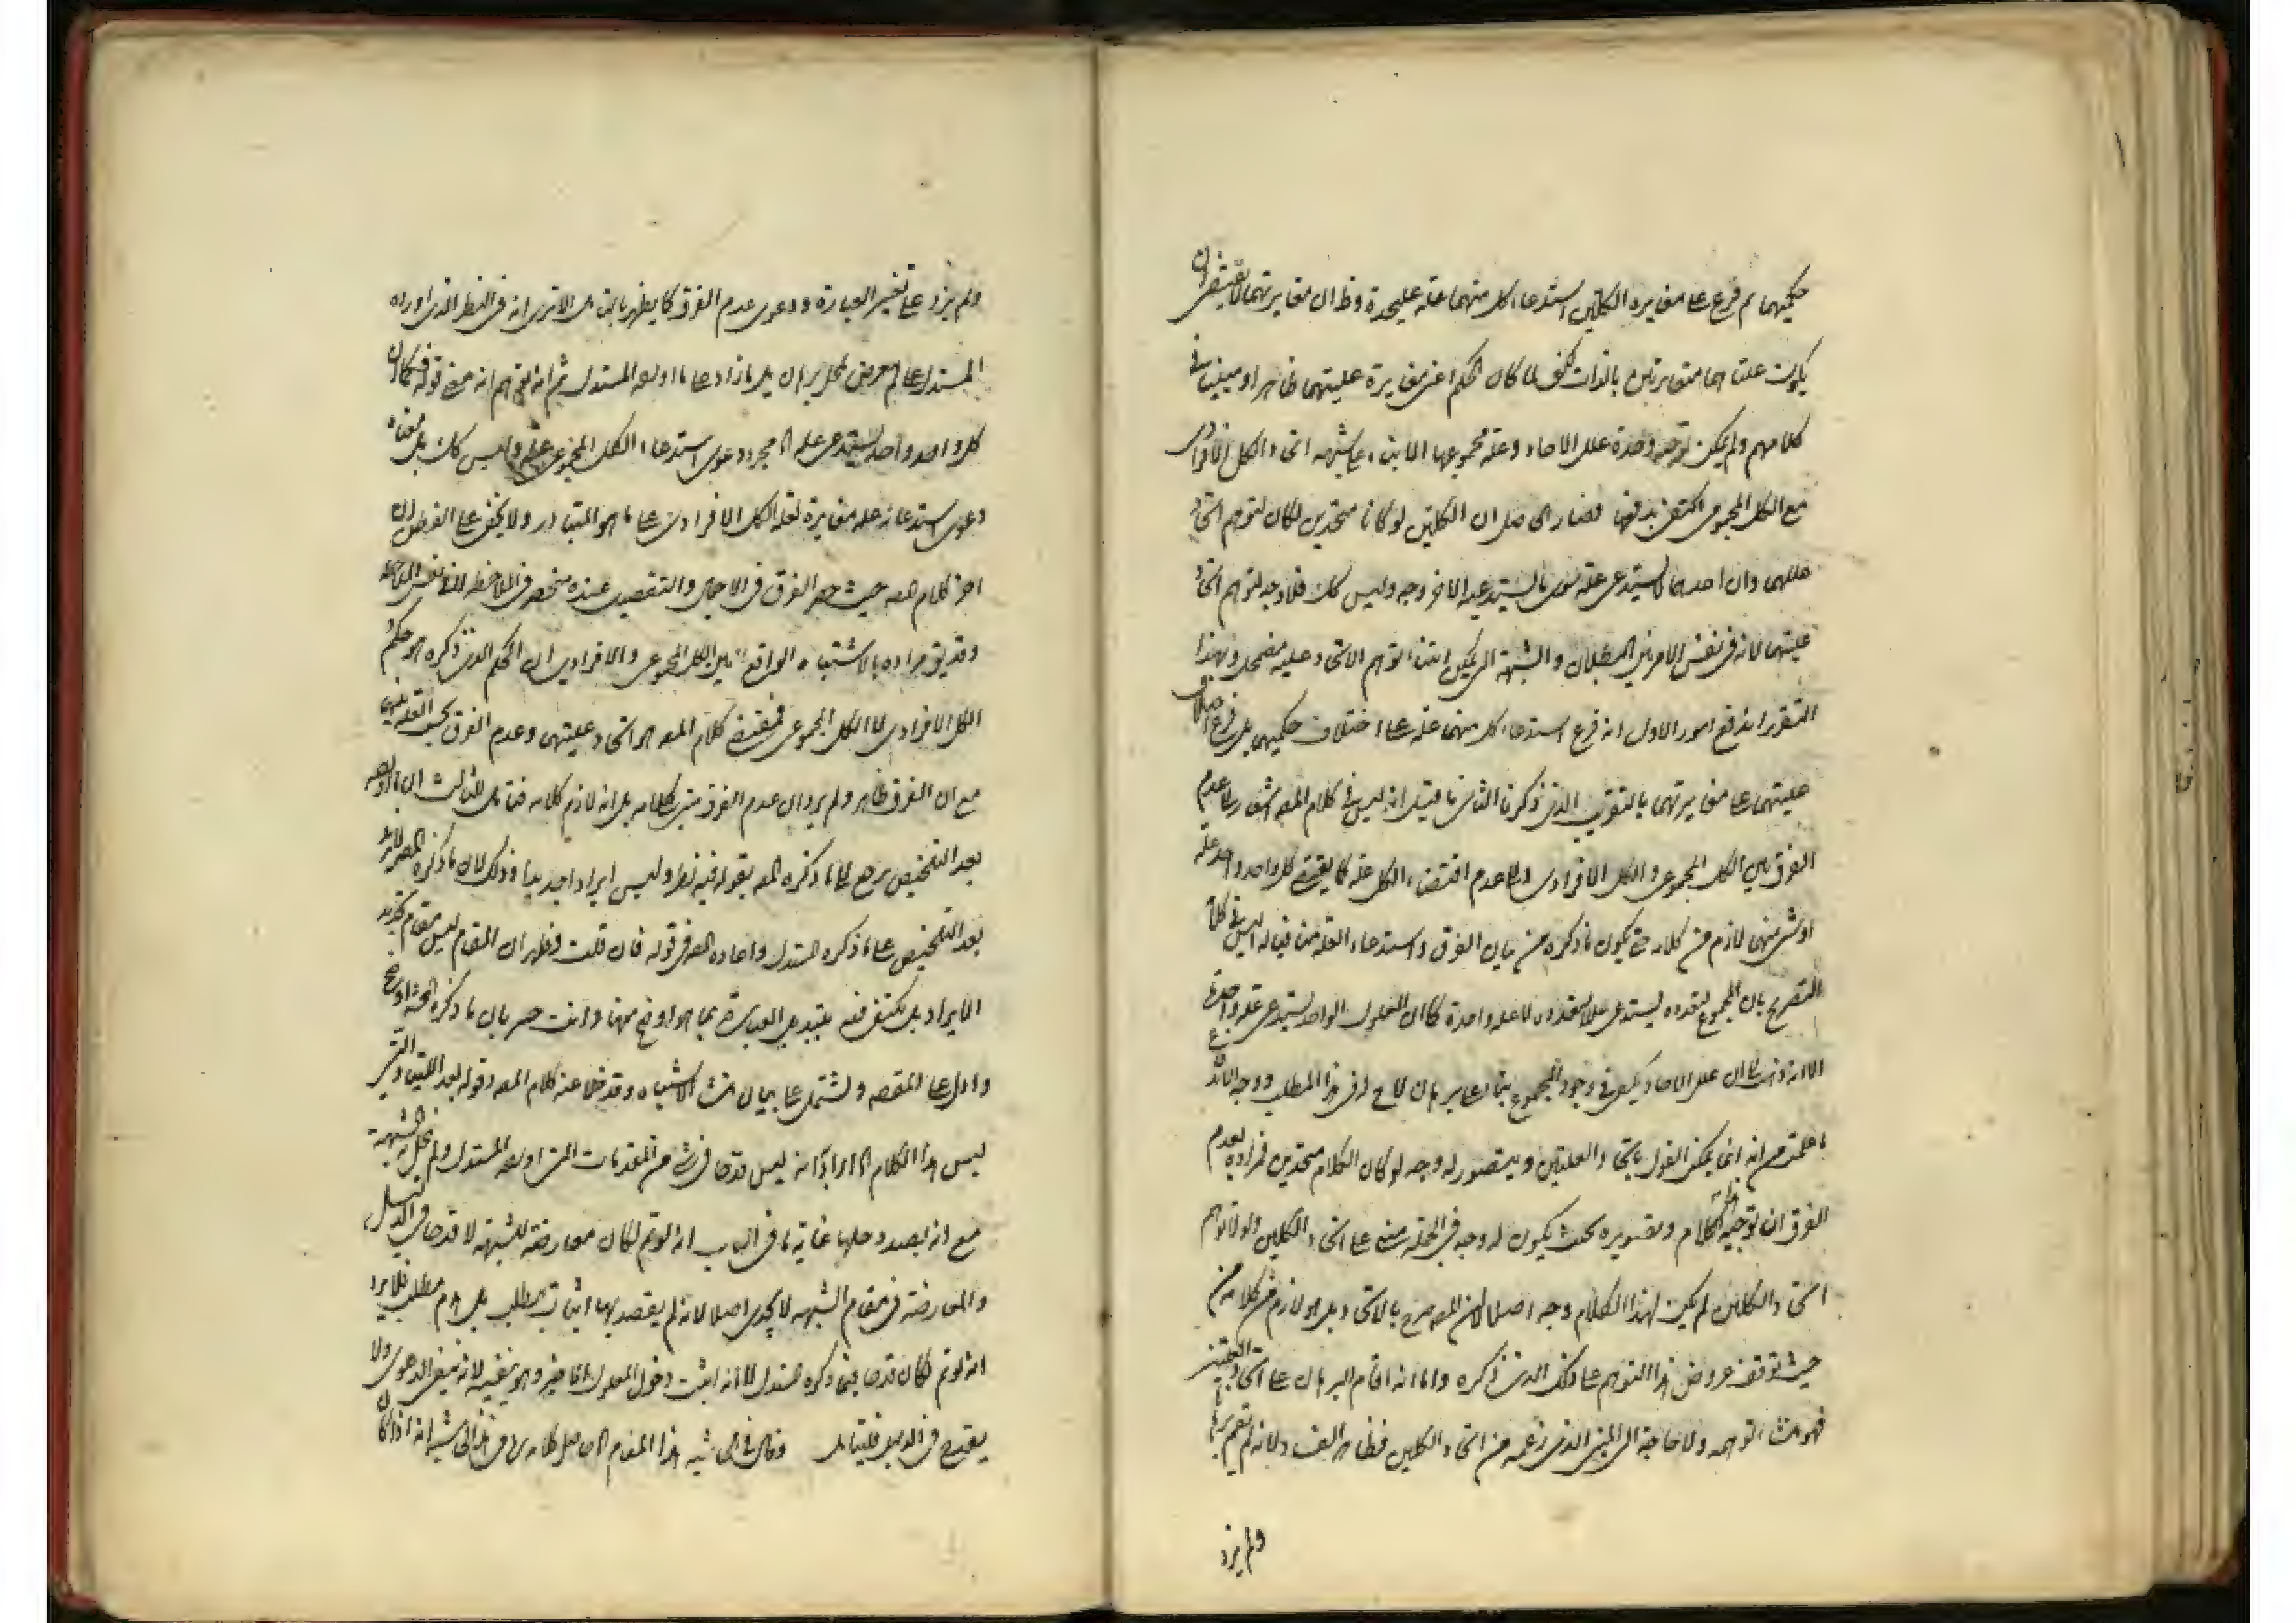 حكميهما ثم فرع على مغايرة الكليتين استدعاء كل منهما علة عليحدة وظ ان مغايرتهما لا يقتضى ان
يكون علتاهما متغايرتين بالذات لكن لما كان الحكم اعنى مغايرة علتيهما ظاهرا ومبينا فى
كلامهم ولم يمكن توهم وحدة علل الاحاد وعلة مجموعها الا بناء على شبهة اتحاد الكل الافرادى
مع الكل المجموعى اكتفى بدفعها فصار الحاصل ان الكليتين لو كانا متحدين لكان لتوهم اتحاد
علتيهما وان احدهما لا يستدعى علة سوى ما يستدعيه الاخر وجه وليس كك فلا وجه لتوهم اتحاد
علتيهما لانه فى نفس الامر بين البطلان والشبهة التى يمكن ابتناء توهم الاتحاد عليه مضمحل وبهذا
التقرير اندفع امور الاول انه فرع استدعاء كل منهما علة على اختلاف حكميهما بل فرع اختلاف
علتيهما على مغايرتهما بالتقريب الذى ذكرنا الثانى ما قيل انه ليس فى كلام المص اشعار بعدم
الفرق بين الكل المجموعى والكل الافرادى ولا عدم اقتضاء الكل علة كما يقتضى كل واحد واحد علة
او شئ منهما لازم من كلامه حتى يكون ما ذكره من بيان الفرق واستدعاء العلة من قباله اليس فى كلامه
التصريح بان المجموع لتعدده يستدعى عللا متعددة لا علة واحدة كما ان المعلول الواحد يستدعى علة واحدة
الا انه ذهب الى ان علل الاحاد يكفى فى وجود المجموع بناء على برهان لاح له فى هذا المطلب ووجه الاندفاع
ما علمت من انه انما يمكن القول باتحاد العلتين ويتصور له وجه لو كان الكلام متحدين فمراده بعدم
الفرق ان توجيه هذا الكلام وتصويره بحيث يكون له وجه فى الجملة مبنى على اتحاد الكليتين ولولا توهم
اتحاد الكليتين لم يكن لهذا الكلام وجه اصلا لا ان المص صرح بالاتحاد وبل هو لازم من كلامه من
حيث توقف عروض هذا التوهم على ذلك الذى ذكره واما انه اقام البرهان على اتحاد العلتين
فهو منشاء التوهم ولا حاجة الى المبنى الذى زعمه من اتحاد الكليتين فظاهر الفساد لانه لم يقم برهانا
ولم يزد
ولم يزد على تغيير العبارة ودعوى عدم الفرق كما يظهر بالتامل الا ترى انه فى النظر الذى اورده
المستدل على لم يعرض لحل برهان بل ما زاد على ما اورده المستدل ثم انه توهم انه معنى قوله فكما ان
كل واحد واحد يستدعى علة الا مجرد دعوى استدعاء الكل المجموعى علة وليس كك بل معناه
دعوى استدعائه علة مغايرة لعلة الكل الافرادى على ما هو المتبادر ولا يخفى على الفطن ان
اخر كلام المص حيث حصر الفرق فى الاجمال والتفصيل عنده منحصر فى الملاحظة لا فى نفس الملاحظ
وقد يق مراده بالاشتباه الواقع بين الكل المجموعى والافرادى ان الحكم الذى ذكره هو حكم
الكل الافرادى لا الكل المجموعى فمقتضى كلام المص هو اتحاد علتيهما وعدم الفرق بحسب العلة بينهما
مع ان الفرق ظاهر ولم يرد ان عدم الفرق مبنى كلامه بل انه لازم كلامه فتامل الثالث ان ما اورده
بعد التلخيص يرجع الى ما ذكره المص بقوله فيه نظر وليس ايرادا جديدا وذلك لان ما ذكره المص لا يزيد
بعد التلخيص على ما ذكره المستدل واعاده المص فى قوله فان قلت فظهر ان المقام ليس مقام تجديد
الايراد بل يكتفى فيه بتبديل العبارة بما هو اوضح منها وانت خبير بان ما ذكره المحشى اوضح
وادل على المقصد ويشتمل على بيان منشاء الاشتباه وقد خلا عنه كلام المص وقوله بعد اللتيا والتى
ليس هذا الكلام الا ايرادا انه ليس قدحا فى شئ من المقدمات التى اوردها المستدل ولم يحل به الشبهة
مع انه بصدد حلها غاية ما فى الباب انه لو تم لكان معارضة للشبهة لا قدحا فى الدليل
والمعارضة فى مقام الشبهة لا يجدى اصلا لانه لم يقصد بها اثبات مطلب بل هدم مطلب فلا يرد
انه لو تم لكان قدحا فيما ذكره المستدل لانه اثبت دخول المعلول الاخير وهو ينفيه لانه ينفى الدعوى ولا
يقدح فى الدليل فليتامل وقال فى الحاشية هذا المقام الحاصل كلامه فى هذه الحاشية انه اذا كان